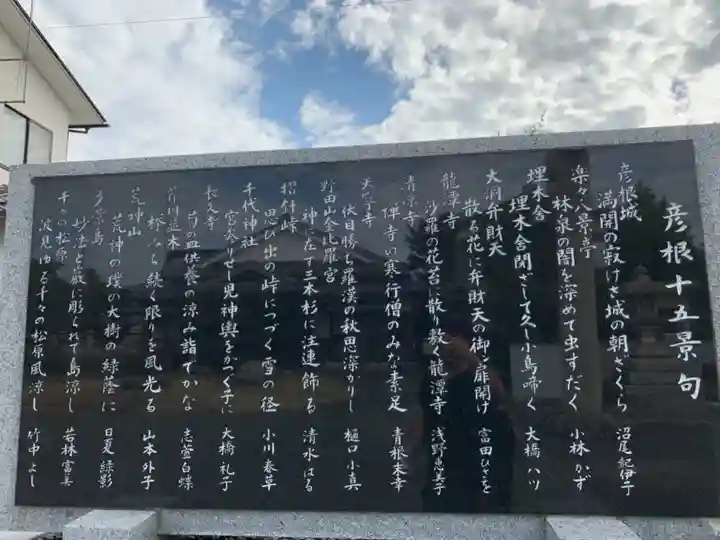 彦根十五景句
彦根城
満開の寂けさ城の朝ざくら 沼尾紀伊子
楽々八景亭
林泉の闇を深めて虫すだく 小林かず
埋木舎
埋木舎閉ざして久し小鳥啼く 大橋ハツ
大洞弁財天
散る花に弁財天の御扉開け 富田ひさを
龍潭寺
沙羅の花苔に散り敷く龍潭寺 浅野恵美子
清凉寺
禅寺い寒行僧のみな素足 青根末幸
天寧寺
伏目勝ち羅漢の秋思深かりし 樋口小真
野田山金比羅宮
神在す三本杉に注連飾る 清水はる
摺針峠
田び出の峠につづく雪の径 小川春草
千代神社
宮入りさし児神輿をかつぐ子に 大橋礼子
長久寺
菊の皿供養の涼み詣でかな 志萱白蝶
芹川並木
橋から続く限りを風光る 山本外子
荒神山
荒神の璞の大樹の緑蔭に 日夏緑影
多景島
妙法と巌に彫られて島涼し 若林富美
千々の松原
波見ゆる千々の松原風涼し 竹中よし